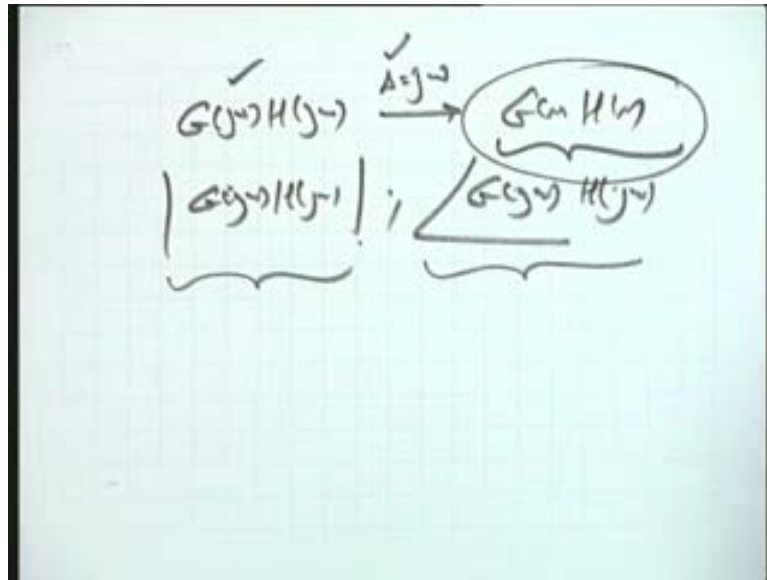 G(jω)H(jω) s=jω → G(s) H(s)
|G(jω)H(jω)| ; ∠G(jω) H(jω)